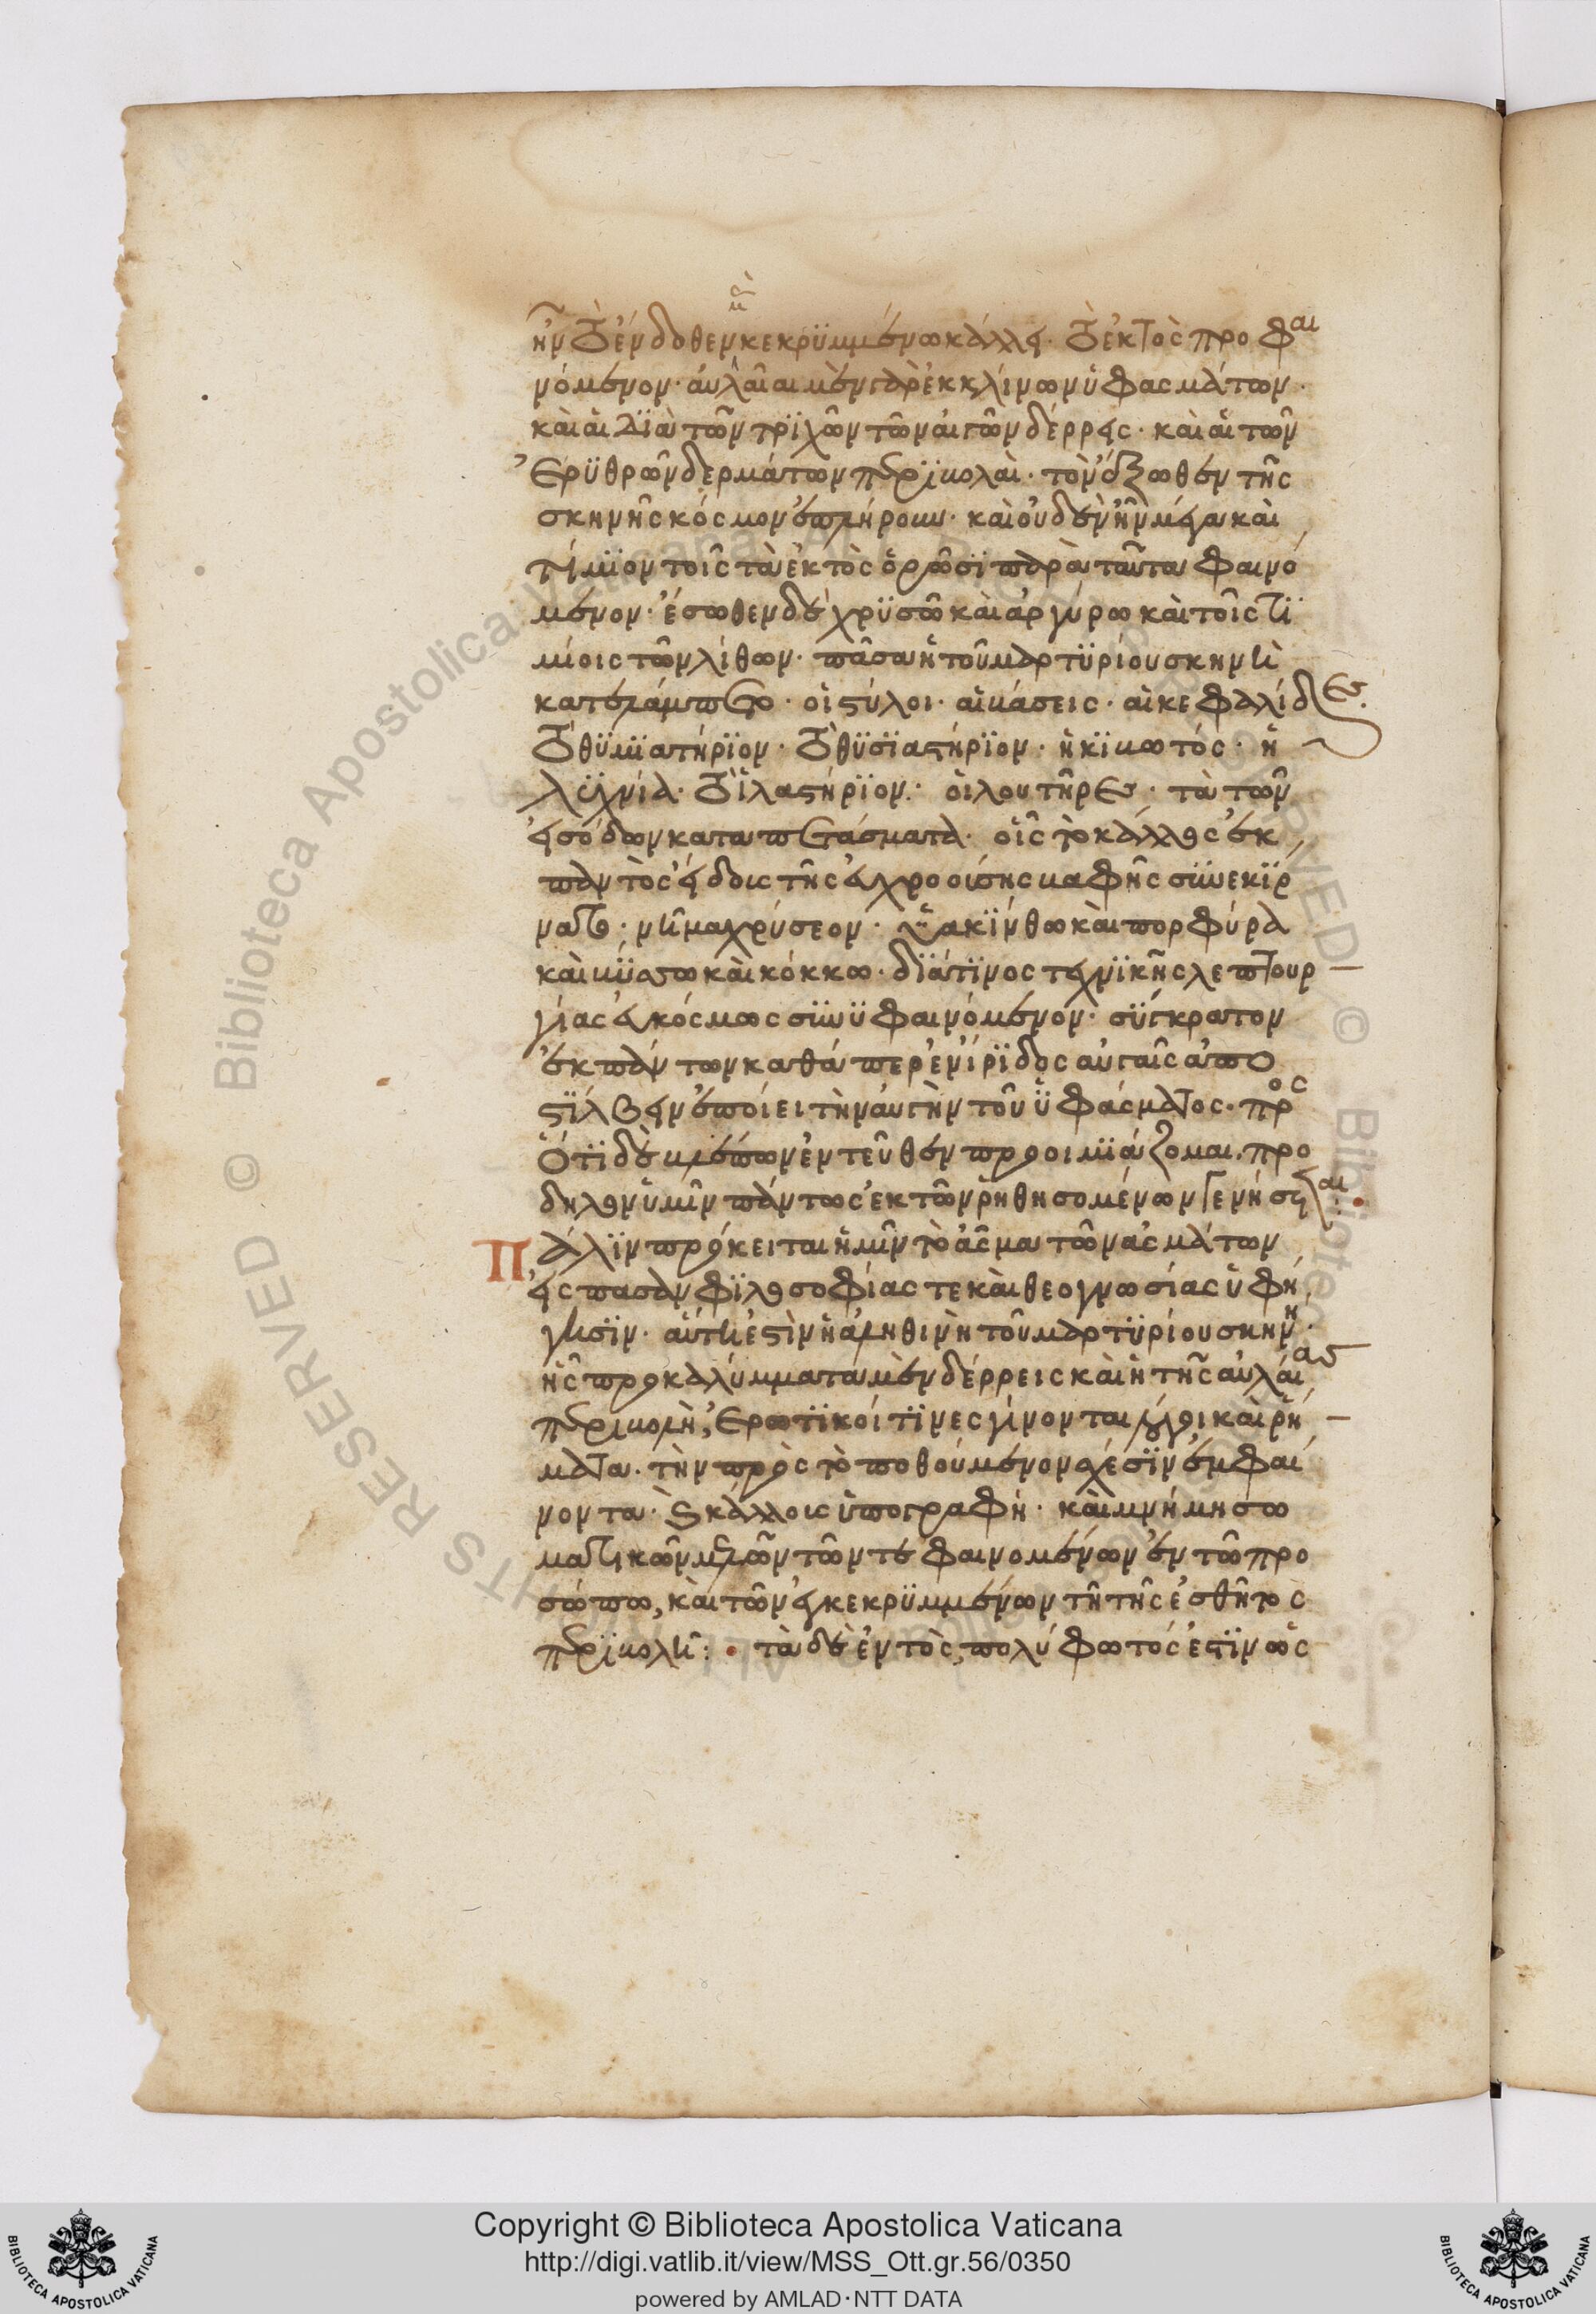 ἦν τὸ ἔνδοθεν κεκρυμμένω κάλλει· τὸ ἐκτὸς προφαι
νόμενον· αὐλαῖαι μὲν γὰρ ἐκ κλίνων ὑφασμάτων·
καὶ αἱ διὰ τῶν τριχῶν τῶν αἰγῶν δέρρεις· καὶ αἱ τῶν
ἐρυθρῶν δερμάτων περιβολαὶ· τὸν ἔξωθεν τῆς
σκηνῆς κόσμον ἐπλήρουν· καὶ οὐδὲν ἦν μέγα καὶ
τίμιον τοῖς τὰ ἐκτὸς ὁρῶσι παρὰ ταῦτα φαινό
μενον· ἔσωθεν δὲ χρυσῶ καὶ ἀργύρω καὶ τοῖς τι
μίοις τῶν λίθων· πᾶσα ἡ τοῦ μαρτυρίου σκηνὴ
κατελάμπετο· οἱ στύλοι· αἱ βάσεις· αἱ κεφαλίδες·
τὸ θυμιατήριον· τὸ θυσιαστήριον· ἡ κιβωτός· ἡ
λυχνία· τὸ ἱλαστήριον· οἱ λουτῆρες· τὰ τῶν
εἰσόδων καταπετάσματα· οἷς τὸ κάλλος ἐκ
παντὸς εἴδους τῆς εὐχροούσης βαφῆς συνεκίρ
νατο· νῆμα χρύσεον· ὑακίνθω καὶ πορφύρα
καὶ βύσσω καὶ κόκκω· διά τινος τεχνικῆς λεπτουρ
γίας εὐκόσμως συνυφαινόμενον· σύγκρατον
ἐκ πάντων καθάπερ ἐν ἴριδος αὐγαῖς ἀπο
στίλβειν ἐποίει τὴν αὐγὴν τοῦ ὑφάσματος· πρὸς
ὅτι δὲ βλέπων ἐντεῦθεν προοιμιάζομαι· πρό
δηλον ὑμῖν πάντως ἐκ τῶν ῥηθησομένων γενήσεται·
Πάλιν πρόκειται ἡμῖν τὸ ἆσμα τῶν ἀσμάτων
εἰς πᾶσαν φιλοσοφίας τε καὶ θεογνωσίας ὑφή
γησιν· αὕτη ἐστὶν ἡ ἀληθινὴ τοῦ μαρτυρίου σκηνή·
ἧς προκαλύμματα μὲν δέρρεις καὶ ἡ τῆς αὐλαίας
περιβολὴ, ἐρωτικοί τινες γίνονται λόγοι καὶ ῥή
ματα· τὴν πρὸς τὸ ποθούμενον σχέσιν ἐμφαί
νοντα· καὶ κάλλους ὑπογραφή· καὶ μνήμη σω
ματικῶν μελῶν τῶν τε φαινομένων ἐν τῶ προ
σώπω, καὶ τῶν ἐγκεκρυμμένων τῆ τῆς ἐσθῆτος
περιβολῆ: τὰ δὲ ἐντὸς, πολύφωτός ἐστιν ὡς
Copyright © Biblioteca Apostolica Vaticana
http://digi.vatlib.it/view/MSS_Ott.gr.56/0350
powered by AMLAD·NTT DATA